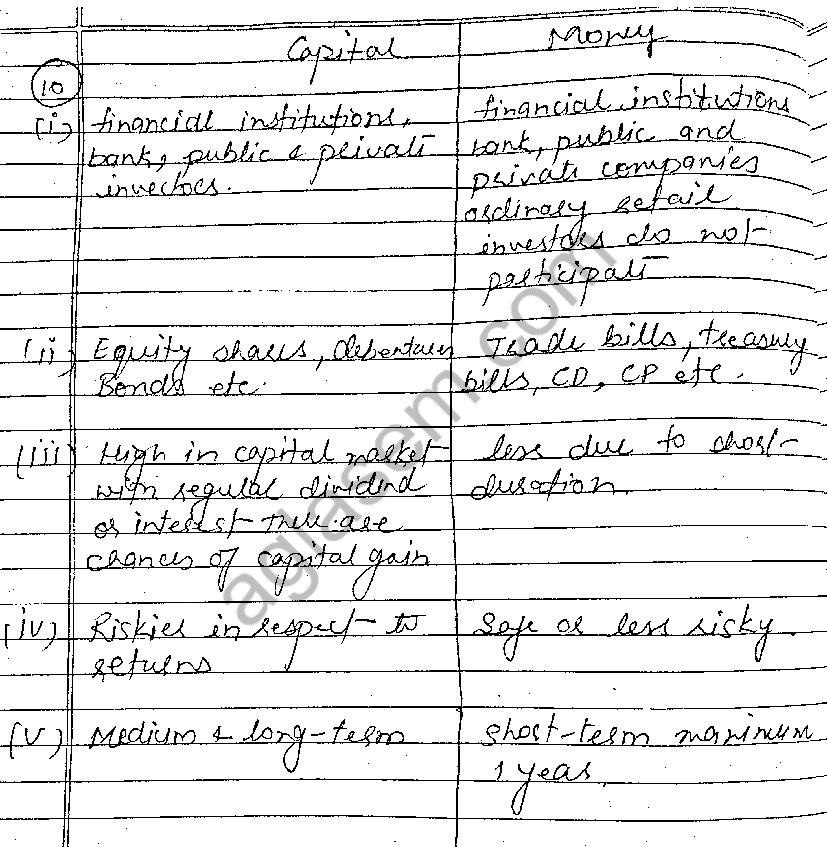 Capital Money
10
(i) financial institutions, financial institutions
bank, public & private bank, public and
investors. private companies
ordinary retail
investors do not
participate
(ii) Equity shares, debentures Trade bills, treasury
Bonds etc. bills, CD, CP etc.
(iii) High in capital market less due to short-
with regular dividend duration.
or interest there are
chances of capital gain
(iv) Riskier in respect to Safe or less risky.
returns
(v) Medium & long-term short-term maximum
1 year.
aglasem.com